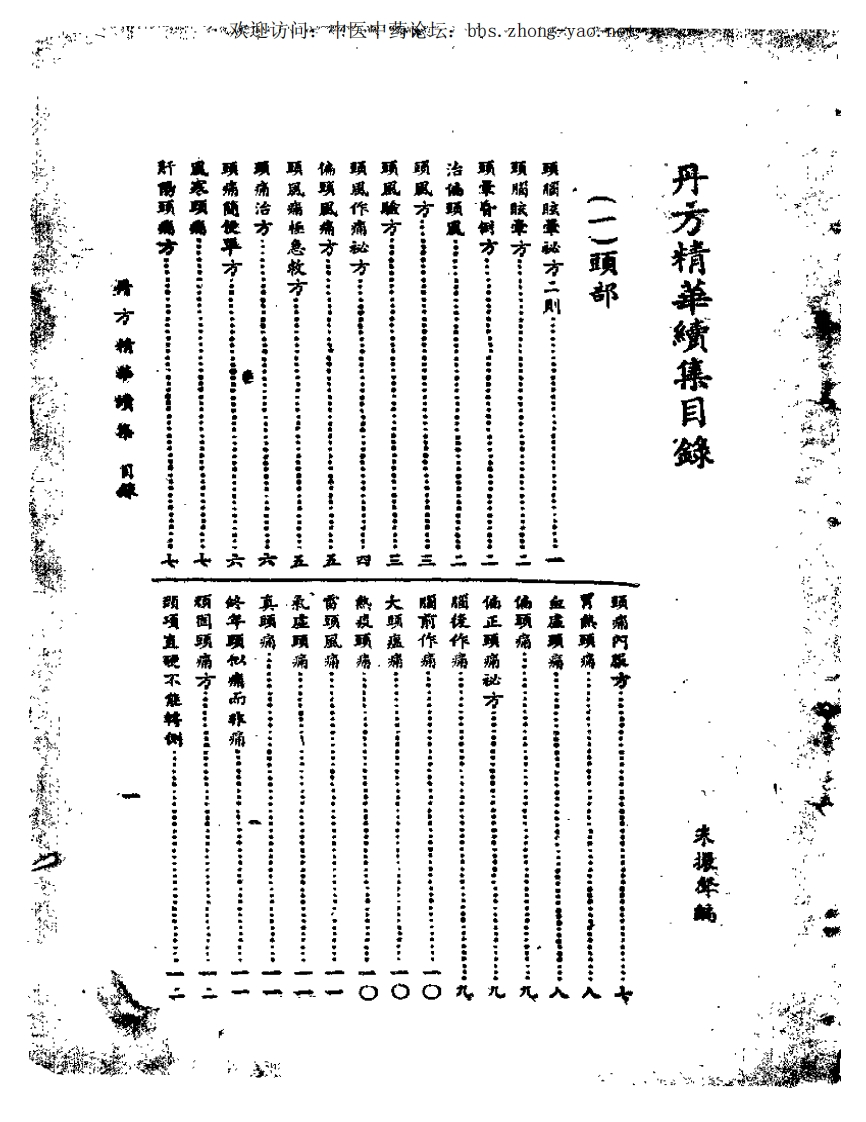 欢迎访问：中医中药论坛：bbs.zhong-yao.net
丹方精華續集目錄
朱振聲編
（一）頭部
頭腦眩暈祕方二則……一
頭腦眩暈方……二
頭暈昏倒方……二
治偏頭風……二
頭風方……三
頭風驗方……三
頭風作痛祕方……四
偏頭風痛方……五
頭風痛極急救方……五
頭痛治方……六
頭痛簡便單方……六
風寒頭痛……七
肝陽頭痛方……七
頭痛內服方……七
胃熱頭痛……八
血虛頭痛……八
偏頭痛……九
偏正頭痛祕方……九
腦後作痛……九
腦前作痛……一〇
大頭瘟痛……一〇
熱疫頭痛……一〇
雷頭風痛……一一
氣虛頭痛……一一
真頭痛……一一
終年頭似痛而非痛……一一
頑固頭痛方……一二
頸項直硬不能轉側……一二
丹方精華續集 目錄
一